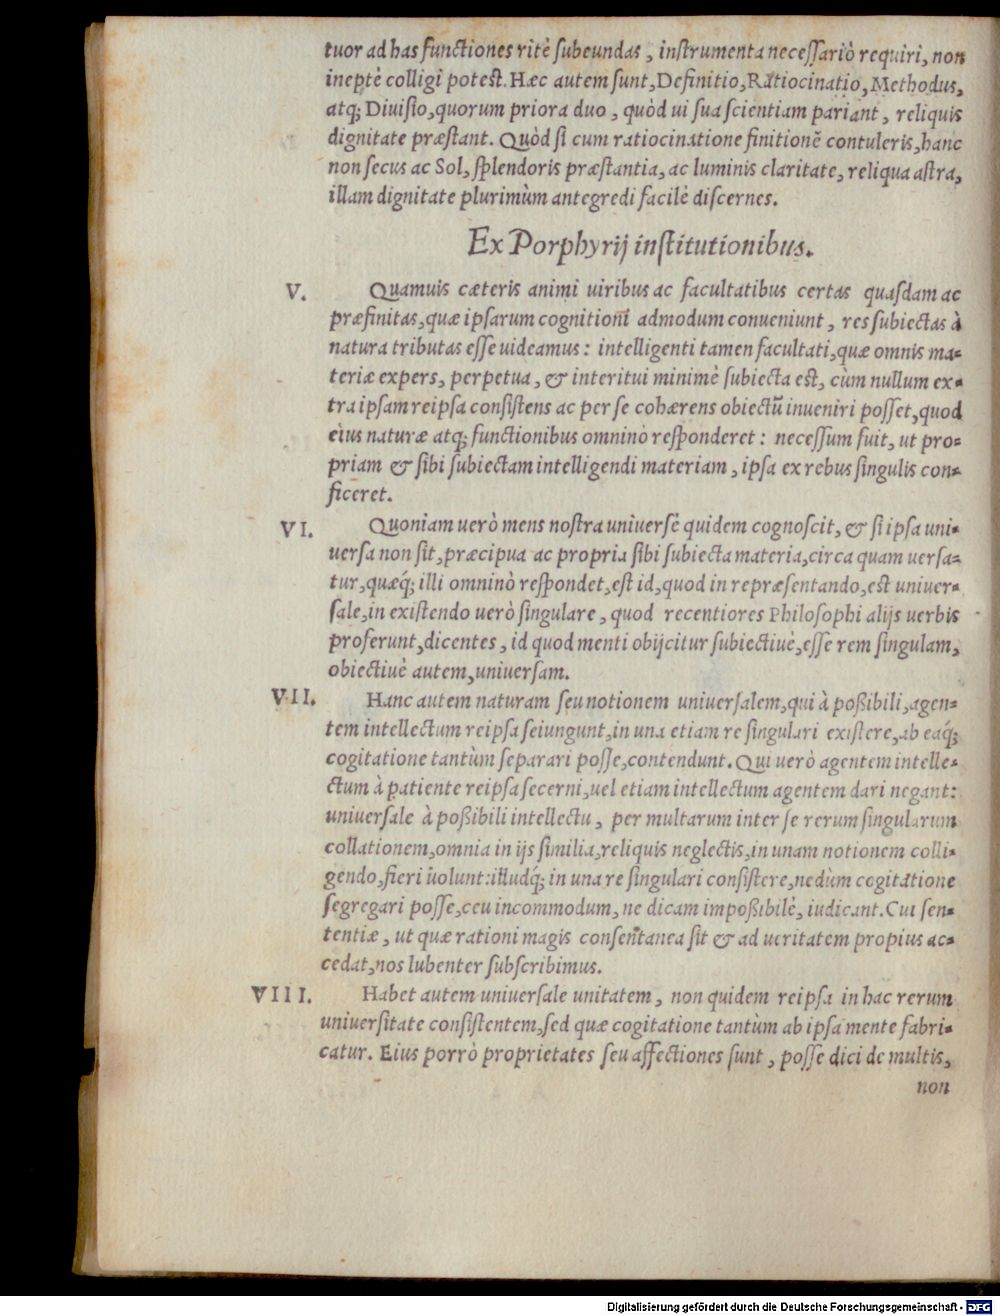 tuor ad has functiones ritè subeundas, instrumenta necessariò requiri, non
ineptè colligi potest. Hæc autem sunt, Definitio, Ratiocinatio, Methodus,
atq; Diuisio, quorum priora duo, quòd ui sua scientiam pariant, reliquis
dignitate præstant. Quòd si cum ratiocinatione finitionẽ contuleris, hanc
non secus ac Sol, splendoris præstantia, ac luminis claritate, reliqua astra,
illam dignitate plurimùm antegredi facilè discernes.
Ex Porphyrij institutionibus.
V. Quamuis cæteris animi uiribus ac facultatibus certas quasdam ac
præfinitas, quæ ipsarum cognitioni admodum conueniunt, res subiectas à
natura tributas esse uideamus: intelligenti tamen facultati, quæ omnis ma-
teriæ expers, perpetua, & interitui minimè subiecta est, cùm nullum ex-
tra ipsam reipsa consistens ac per se cohærens obiectũ inueniri posset, quod
eius naturæ atq; functionibus omninò responderet: necessum fuit, ut pro-
priam & sibi subiectam intelligendi materiam, ipsa ex rebus singulis con-
ficeret.
VI. Quoniam uerò mens nostra uniuersè quidem cognoscit, & si ipsa uni-
uersa non sit, præcipua ac propria sibi subiecta materia, circa quam uersa-
tur, quæq́; illi omninò respondet, est id, quod in repræsentando, est uniuer-
sale, in existendo uerò singulare, quod recentiores Philosophi alijs uerbis
proferunt, dicentes, id quod menti obijcitur subiectiuè, esse rem singulam,
obiectiuè autem, uniuersam.
VII. Hanc autem naturam seu notionem uniuersalem, qui à poßibili, agen-
tem intellectum reipsa seiungunt, in una etiam re singulari existere, ab eaq́;
cogitatione tantùm separari posse, contendunt. Qui uerò agentem intelle-
ctum à patiente reipsa secerni, uel etiam intellectum agentem dari negant:
uniuersale à poßibili intellectu, per multarum inter se rerum singularum
collationem, omnia in ijs similia, reliquis neglectis, in unam notionem colli-
gendo, fieri uolunt: illudq́; in una re singulari consistere, nedùm cogitatione
segregari posse, ceu incommodum, ne dicam impoßibilè, iudicant. Cui sen-
tentiæ, ut quæ rationi magis consentanea sit & ad ueritatem propius ac-
cedat, nos lubenter subscribimus.
VIII. Habet autem uniuersale unitatem, non quidem reipsa in hac rerum
uniuersitate consistentem, sed quæ cogitatione tantùm ab ipsa mente fabri-
catur. Eius porrò proprietates seu affectiones sunt, posse dici de multis,
non
Digitalisierung gefördert durch die Deutsche Forschungsgemeinschaft - DFG